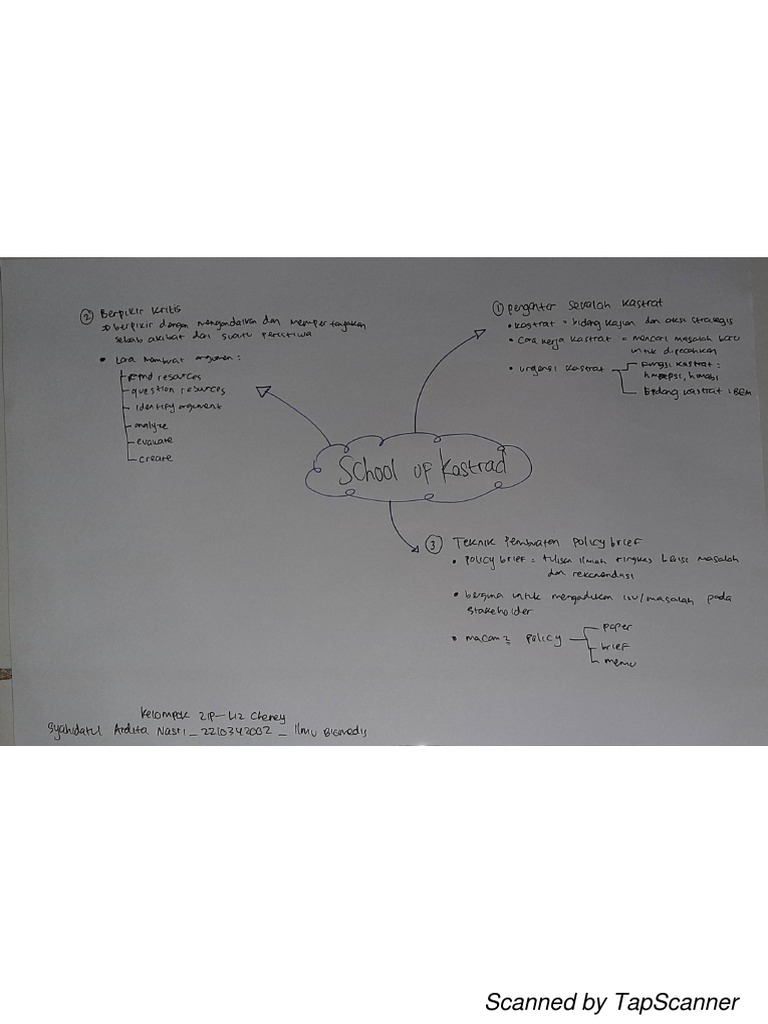 School of Kastrad
① pengantar sekolah kastrat
• kastrat = bidang kajian dan aksi strategis
• cara kerja kastrat = mencari masalah baru
untuk dipecahkan
• urgensi kastrat
fungsi kastrat :
hmepsi, himabi
Bidang kastrat : BEM
② Berpikir kritis
→ berpikir dengan mengandalkan dan mempertanyakan
sebab akibat dari suatu peristiwa
• cara membuat argumen :
find resources
question resources
identify argument
analyze
evaluate
create
③ Teknik Pembuatan policy brief
• policy brief = tulisan ilmiah ringkas berisi masalah
dan rekomendasi
• berguna untuk mengadukan isu/masalah pada
stakeholder
• macam2 policy
paper
brief
memo
Kelompok 21P–Liz Cheney
Syahidatul Ardita Nasri _ 2210342002 _ Ilmu Biomedis
Scanned by TapScanner